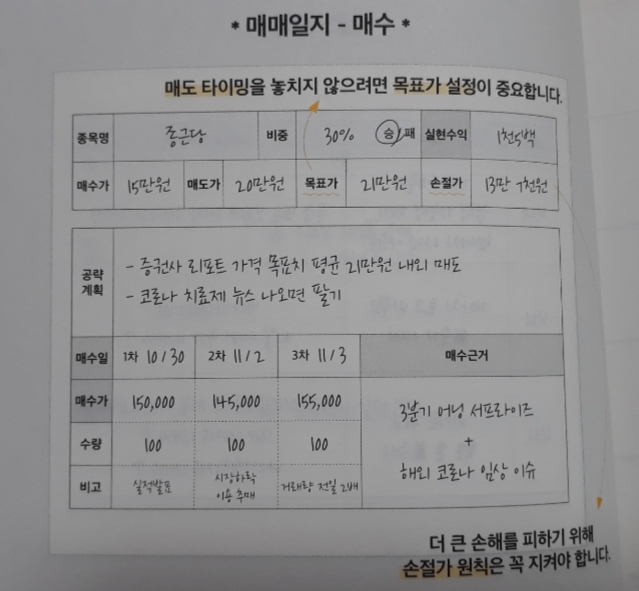 * 매매일지 - 매수 *
매도 타이밍을 놓치지 않으려면 목표가 설정이 중요합니다.
종목명 종근당 비중 30% 승/패 실현수익 1천5백
매수가 15만원 매도가 20만원 목표가 21만원 손절가 13만 7천원
공략
계획
- 증권사 리포트 가격 목표치 평균 21만원 내외 매도
- 코로나 치료제 뉴스 나오면 팔기
매수일 1차 10/30 2차 11/2 3차 11/3 매수근거
매수가 150,000 145,000 155,000
3분기 어닝 서프라이즈
+
해외 코로나 임상 이슈
수량 100 100 100
비고 실적발표 시장하락
이용 추매 거래량 전일 2배
더 큰 손해를 피하기 위해
손절가 원칙은 꼭 지켜야 합니다.